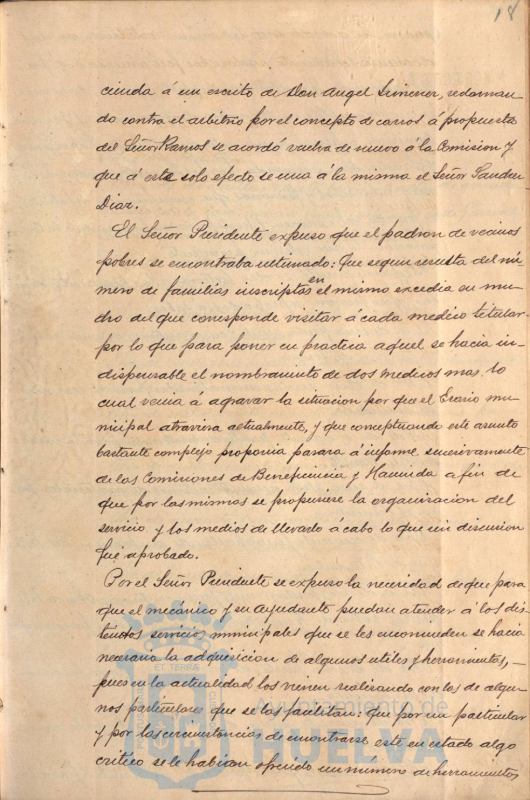 18
cienda á un escrito de Don Angel Gimenez, reclaman-
do contra el arbitrio por el concepto de carros á propuesta
del Señor Ramos se acordó vuelva de nuevo á la Comision y
que á este solo efecto se una á la misma el Señor Sanchez
Diaz.
El Señor Presidente expuso que el padron de vecinos
pobres se encontraba ultimado: Que segun resulta del nú-
mero de familias inscriptas en el mismo excedia en mu-
cho del que corresponde visitar á cada medico titular
por lo que para poner en practica aquel se hacia in-
dispensable el nombramiento de dos medicos mas, lo
cual venia á agravar la situacion por que el Erario mu-
nicipal atraviesa actualmente, y que conceptuando este asunto
bastante complejo proponia pasara á informe sucesivamente
de las Comisiones de Beneficencia y Hacienda a fin de
que por las mismas se propusiese la organizacion del
servicio y los medios de llevarlo á cabo lo que sin discusion
fué aprobado.
Por el Señor Presidente se expuso la necesidad de que para
que el mecánico y su ayudante puedan atender á los dis-
tintos servicios municipales que se les encomienden se hacia
necesaria la adquisicion de algunos utiles y herramientas,
pues en la actualidad los vienen realizando con los de algu-
nos particulares que se los facilitan: que por un particular
y por las circunstancias de encontrarse este en estado algo
critico se le habian ofrecido un número de herramientas
ET TERRA
Ayuntamiento de
HUELVA